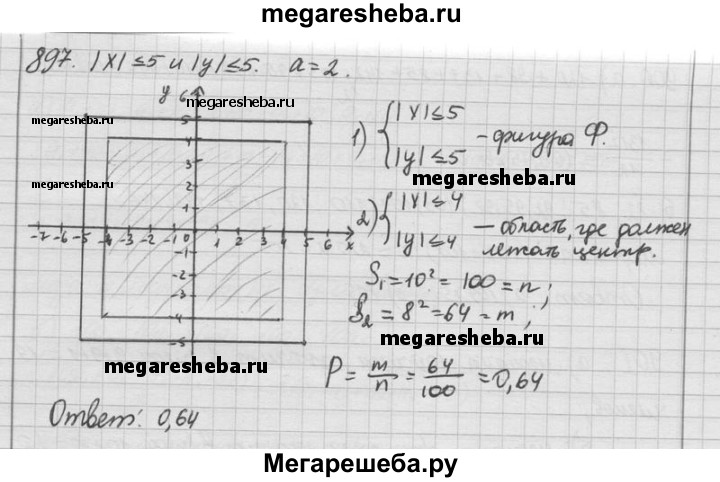 megaresheba.ru
897. |x| ≤ 5 и |y| ≤ 5. a = 2.
y 6
megaresheba.ru
5
megaresheba.ru
4
3
megaresheba.ru
2
1
-7 -6 -5 -4 -3 -2 -1 0 1 2 3 4 5 6 x
-1
-2
-3
-4
-5
megaresheba.ru
1) { |x| ≤ 5
|y| ≤ 5 - фигура Ф.
megaresheba.ru
2) { |x| ≤ 4
|y| ≤ 4 — область, где должен
лежать центр.
S₁ = 10² = 100 = n;
S₂ = 8² = 64 = m;
megaresheba.ru
P = m/n = 64/100 = 0,64
Ответ: 0,64
Мегарешеба.ру